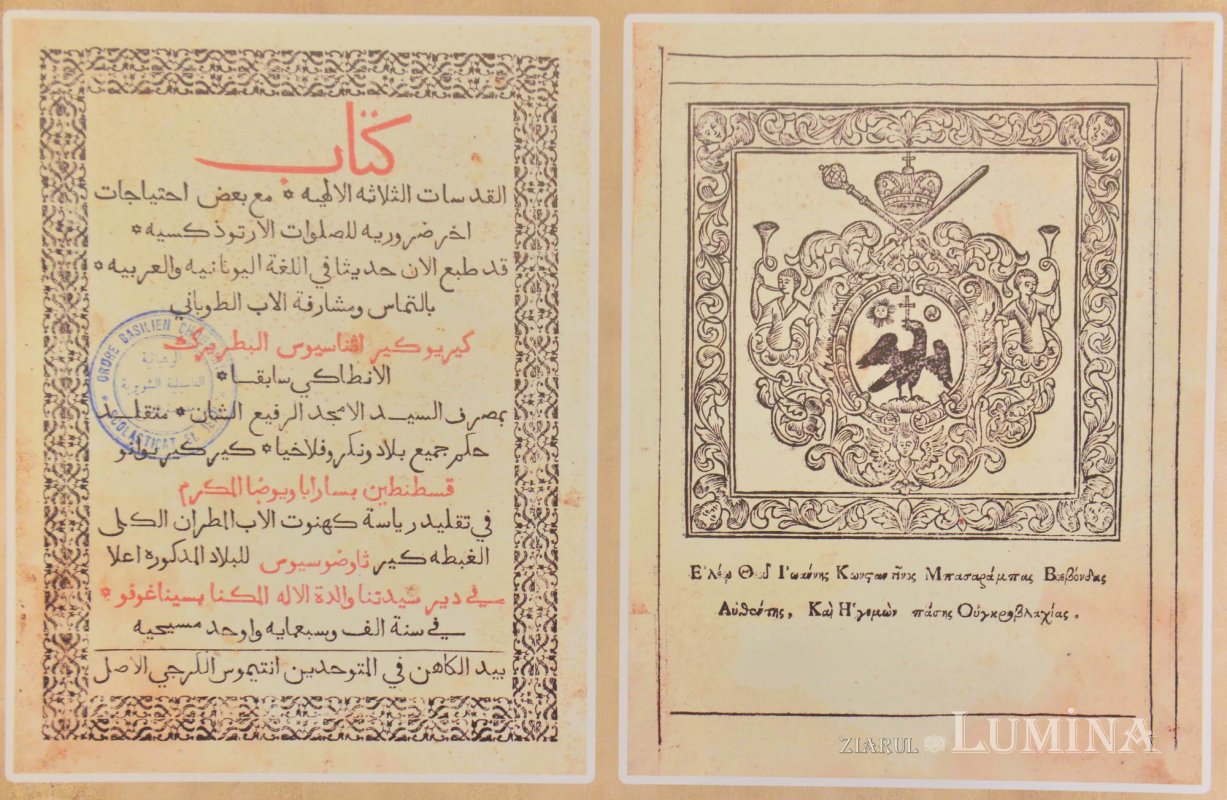 كتاب
القدسات الثلاثه الالهيه * مع بعض احتياجات
اخر ضروريه للصلوات الارتوذكسيه *
قد طبع الان حديثا في اللغة اليونانيه والعربيه *
بالتماس ومشارفة الاب الطوباني
كيريو كير اثناسيوس البطريرك
الانطاكي سابقا *
بمصرف السيد الامجد الرفيع الشان * متقلد
حكم جميع بلاد ونكروفلاخيا * كير كير يوانو
قسطنطين بسارابا ويوضا المكرم
في تقليد رياسة كهنوت الاب المطران الكلى
الغبطه كير ثاوضوسيوس للبلاد المذكوره اعلا
في دير سيدتنا والدة الاله المكنا بسيناغوفو *
في سنة الف وسبعمايه واوحد مسيحيه
بيد الكاهن في المتوحدين انتيموس الكرجي الاصل
ORDRE BASILIEN
SCOLASTICAT
Ἐλέῳ Θεοῦ Ἰωάννης Κωνσταντῖνος Μπασαράμπας Βοεβόνδας
Αὐθέντης, Καὶ Ἡγεμὼν πάσης Οὐγκροβλαχίας.
ZIARUL LUMINA